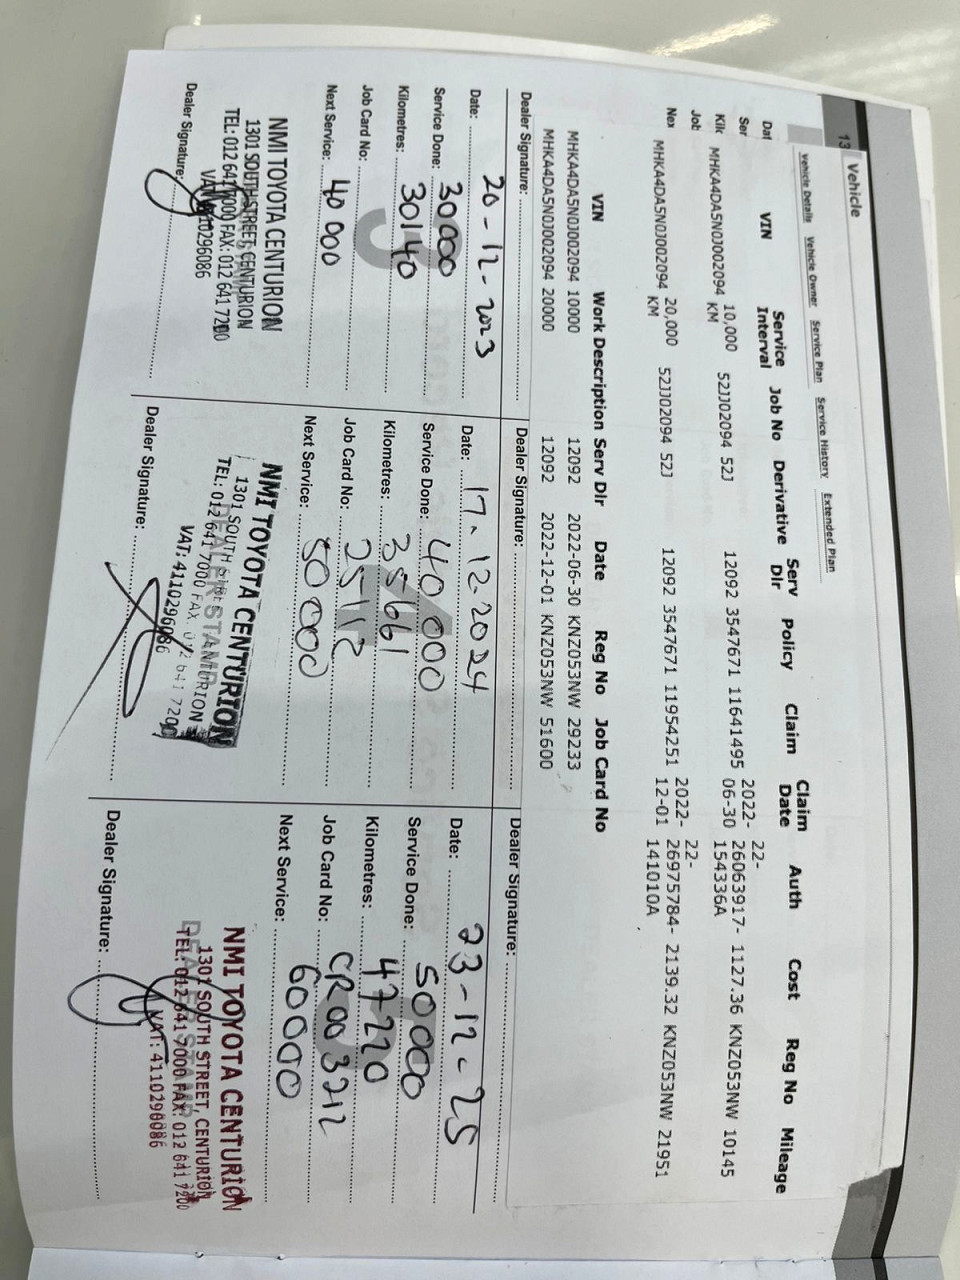 Vehicle
13
Vehicle Details Vehicle Owner Service Plan Service History Extended Plan
VIN Service Interval Job No Derivative Serv Dlr Policy Claim Claim Date Auth Cost Reg No Mileage
MHKA4DA5N0J002094 10,000 KM 52JJ02094 52J 12092 3547671 11641495 2022-06-30 22-26063917-154336A 1127.36 KNZ053NW 10145
MHKA4DA5N0J002094 20,000 KM 52JJ02094 52J 12092 3547671 11954251 2022-12-01 22-26975784-141010A 2139.32 KNZ053NW 21951
Dat
Ser
Kilo
Job
Nex
VIN Work Description Serv Dlr Date Reg No Job Card No
MHKA4DA5N0J002094 10000 12092 2022-06-30 KNZ053NW 29233
MHKA4DA5N0J002094 20000 12092 2022-12-01 KNZ053NW 51600
Dealer Signature:
Dealer Signature:
Dealer Signature:
Date: 20-12-2023
Service Done: 30000
Kilometres: 30140
Job Card No:
Next Service: 40 000
NMI TOYOTA CENTURION
1301 SOUTH STREET, CENTURION
TEL: 012 641 7000 FAX: 012 641 7200
Dealer Signature:
Date: 17-12-2024
Service Done: 40 000
Kilometres: 38661
Job Card No: 25112
Next Service: 50 000
NMI TOYOTA CENTURION
DEALER STAMP
TEL: 012 641 7000 FAX 012 641 7200
VAT: 4110296086
Dealer Signature:
Date: 23-12-25
Service Done: 50000
Kilometres: 47220
Job Card No: CR003212
Next Service: 60000
NMI TOYOTA CENTURION
1301 SOUTH STREET, CENTURION
DEALER STAMP
TEL: 012 641 7000 FAX: 012 641 7200
VAT: 4110296086
Dealer Signature: